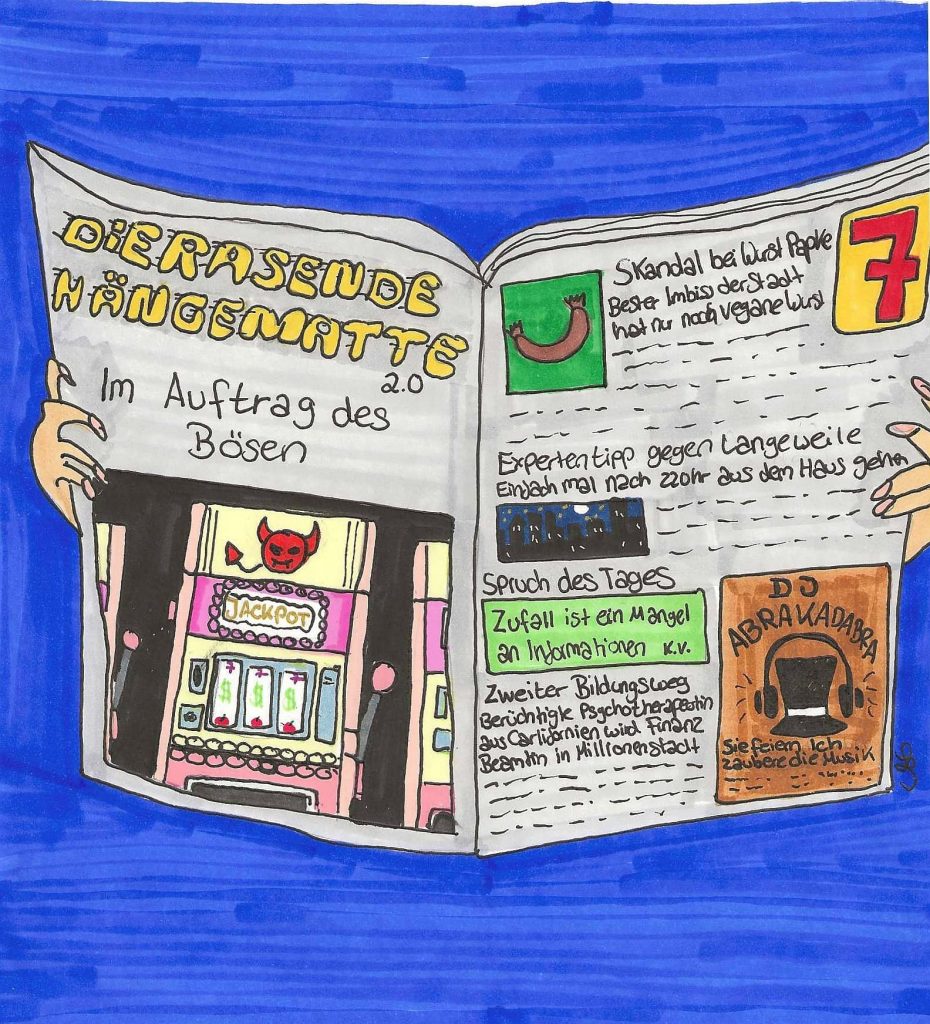 DiE RASENDE
HÄNGEMATTE
2.0
Im Auftrag des
Bösen
JACKPOT
7 7
$ $ $
7
Skandal bei Wurst Papke
Bester Imbiss der Stadt
hat nur noch vegane Wurst
Expertentipp gegen Langeweile
Einfach mal nach 22Uhr aus dem Haus gehen
Spruch des Tages
Zufall ist ein Mangel
an Informationen K.V.
Zweiter Bildungsweg
Berüchtigte Psychotherapeutin
aus Carlifornien wird Finanz
Beamtin in Millionenstadt
DJ
ABRAKADABRA
Sie feiern. Ich
zaubere die Musik